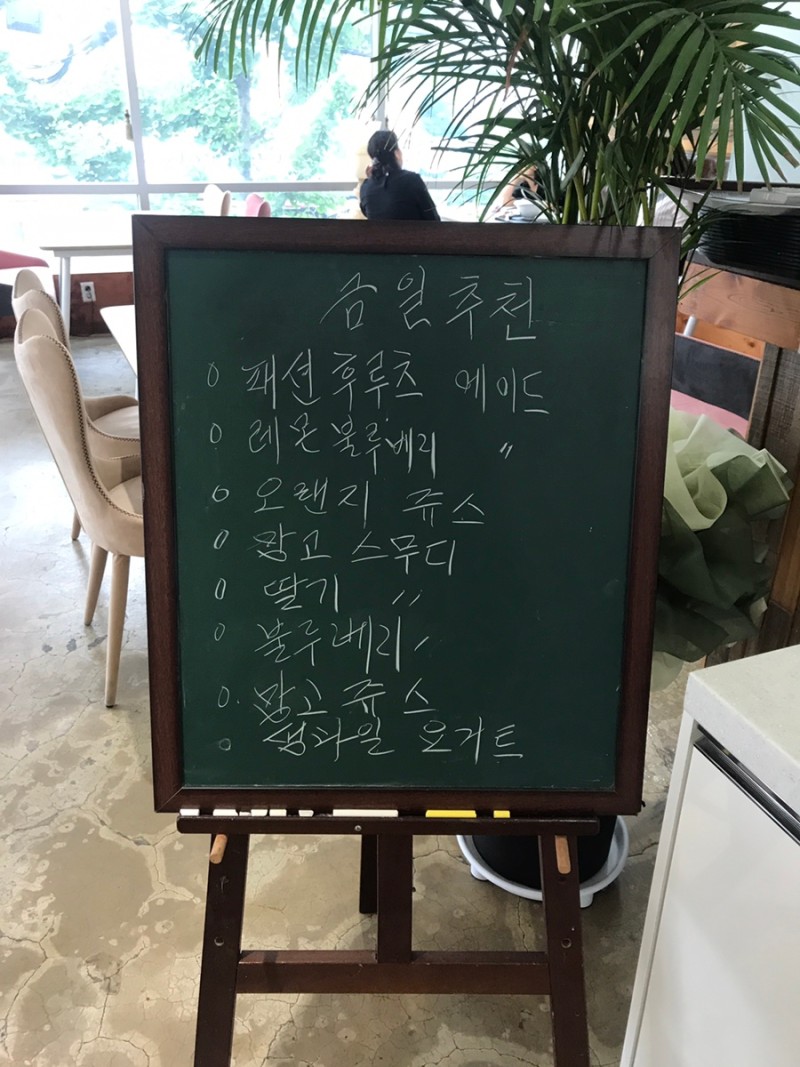 금일추천
0 패션후루츠 에이드
0 레몬블루베리 〃
0 오랜지 쥬스
0 망고 스무디
0 딸기 〃
0 블루베리 〃
0. 망고 쥬스
0 생과일 요거트